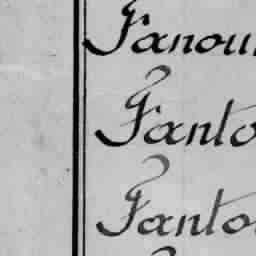 Fanou
Fanto
Fanto